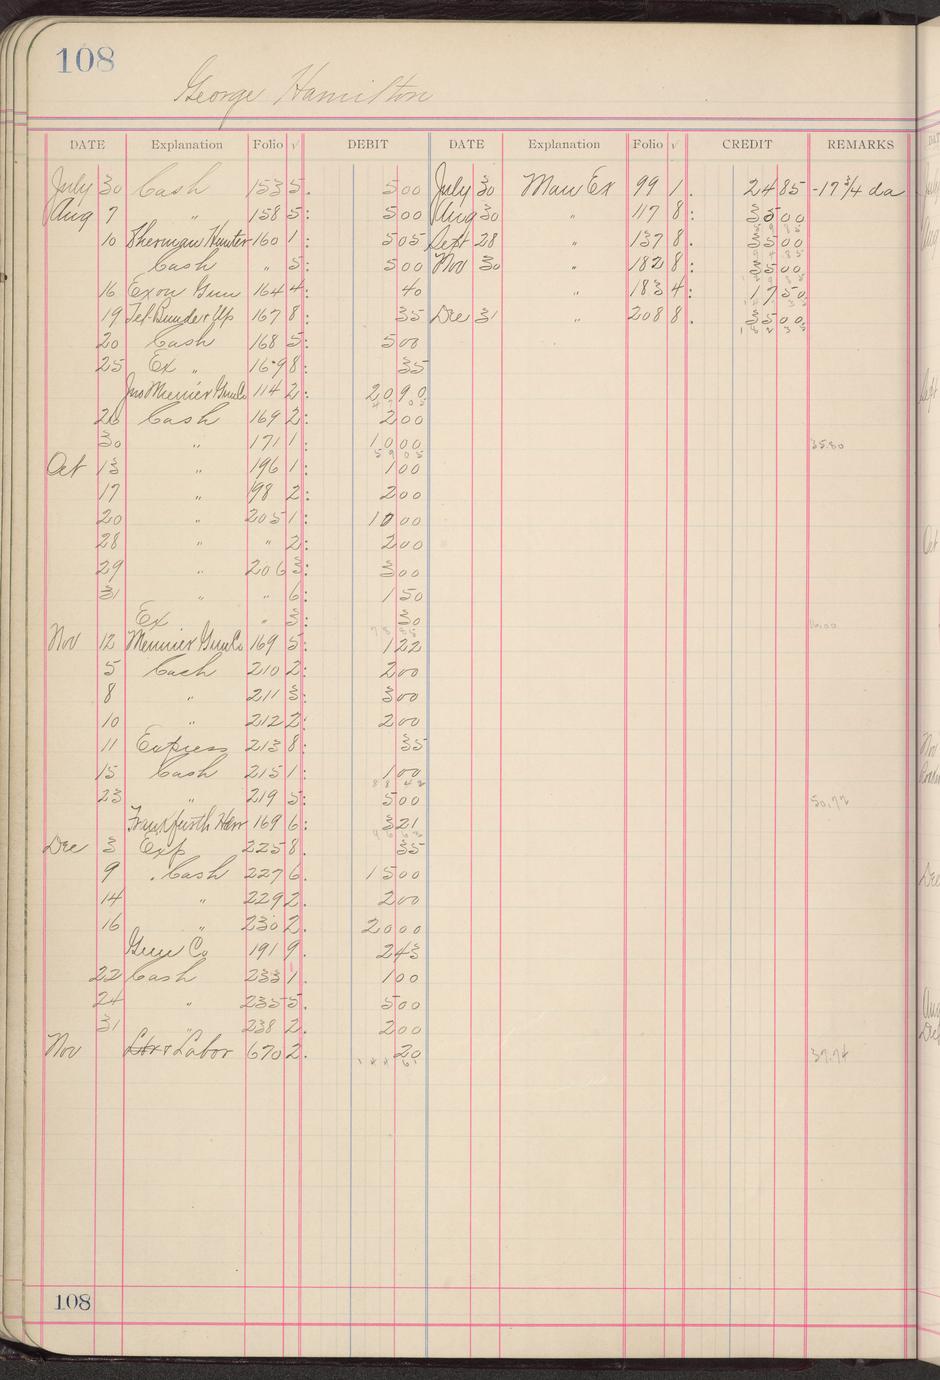 108
George Hamilton
DATE Explanation Folio √ DEBIT DATE Explanation Folio √ CREDIT REMARKS
July 30 Cash 153 5. 5 00 July 30 Man Ex 99 1. 24 85 -17 3/4 da
Aug 7 " 158 5: 5 00 Aug 30 " 117 8: 35 00
10 Sherman Hunter 160 1: 5 05 Sept 28 " 137 8. 35 00
Cash " 5: 5 00 Nov 30 " 182 8: 35 00
16 Ex on Gun 164 4: 40 " 183 4: 17 50
19 Tel. 167 8: 35 Dec 31 " 208 8. 35 00
20 Cash 168 5: 5 00
25 Ex " 169 8: 35
Jno Meunier Gun Co 114 2: 20 90
26 Cash 169 2: 2 00
30 " 171 1: 10 00 35.80
59 05
Oct 13 " 196 1: 1 00
17 " 198 2: 2 00
20 " 205 1: 10 00
28 " " 2: 2 00
29 " 206 3: 3 00
31 " " 6: 1 50
Ex " 3: 30 16.00
Nov 12 Meunier Gun Co 169 5: 1 22
5 Cash 210 2: 2 00
8 " 211 3: 3 00
10 " 212 2: 2 00
11 Express 213 8: 35
15 Cash 215 1: 1 00
88 42
23 " 219 5: 5 00 50.72
Frankfurth Har 169 6: 3 21
96 63
Dec 3 Exp 225 8. 35
9 Cash 227 6. 15 00
14 " 229 2. 2 00
16 " 230 2. 20 00
Gun Co 191 9. 2 43
22 Cash 233 1. 1 00
24 " 235 5. 5 00
31 " 238 2. 2 00
Nov Labor 670 2. 20 37.74
108